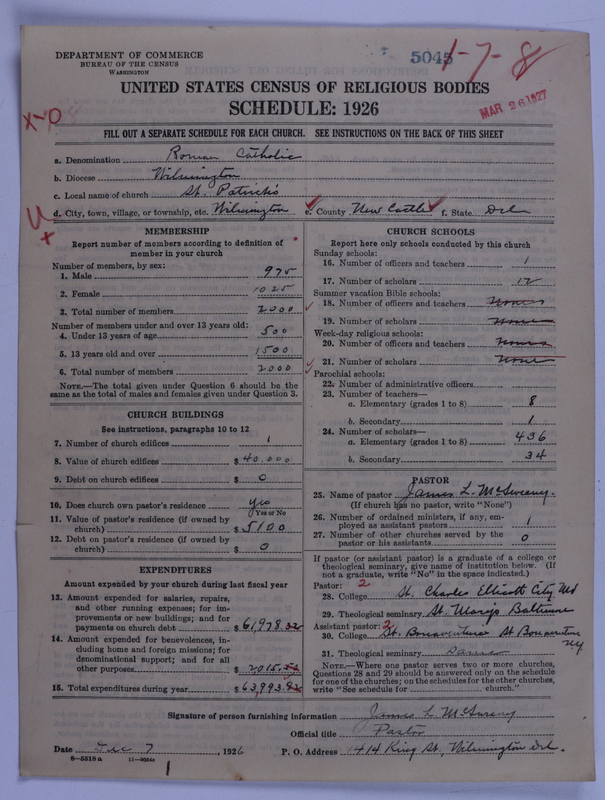 5045
1-7-8
DEPARTMENT OF COMMERCE
BUREAU OF THE CENSUS
WASHINGTON
MAR 26 1927
UNITED STATES CENSUS OF RELIGIOUS BODIES
SCHEDULE: 1926
FILL OUT A SEPARATE SCHEDULE FOR EACH CHURCH. SEE INSTRUCTIONS ON THE BACK OF THIS SHEET
a. Denomination Roman Catholic
b. Diocese Wilmington
c. Local name of church St. Patrick's
d. City, town, village, or township, etc. Wilmington e. County New Castle f. State Del
MEMBERSHIP
Report number of members according to definition of
member in your church
Number of members, by sex:
1. Male 975
2. Female 1025
3. Total number of members 2000
Number of members under and over 13 years old:
4. Under 13 years of age 500
5. 13 years old and over 1500
6. Total number of members 2000
NOTE.—The total given under Question 6 should be the
same as the total of males and females given under Question 3.
CHURCH BUILDINGS
See instructions, paragraphs 10 to 12
7. Number of church edifices 1
8. Value of church edifices $40.000
9. Debt on church edifices $0
10. Does church own pastor's residence yes
Yes or No
11. Value of pastor's residence (if owned by
church) $5100
12. Debt on pastor's residence (if owned by
church) $0
EXPENDITURES
Amount expended by your church during last fiscal year
13. Amount expended for salaries, repairs,
and other running expenses; for im-
provements or new buildings; and for
payments on church debt $61,978.
14. Amount expended for benevolences, in-
cluding home and foreign missions; for
denominational support; and for all
other purposes $2,015.
15. Total expenditures during year $63,993.
CHURCH SCHOOLS
Report here only schools conducted by this church
Sunday schools:
16. Number of officers and teachers 1
17. Number of scholars 12
Summer vacation Bible schools:
18. Number of officers and teachers none
19. Number of scholars none
Week-day religious schools:
20. Number of officers and teachers none
21. Number of scholars none
Parochial schools:
22. Number of administrative officers
23. Number of teachers—
a. Elementary (grades 1 to 8) 8
b. Secondary 1
24. Number of scholars—
a. Elementary (grades 1 to 8) 436
b. Secondary 34
PASTOR
25. Name of pastor James L. McSweeney
(If church has no pastor, write "None")
26. Number of ordained ministers, if any, em-
ployed as assistant pastors 1
27. Number of other churches served by the
pastor or his assistants 0
If pastor (or assistant pastor) is a graduate of a college or
theological seminary, give name of institution below. (If
not a graduate, write "No" in the space indicated.)
Pastor: 2
28. College St. Charles Ellicott City Md
29. Theological seminary St. Marys Baltimore
Assistant pastor: 2
30. College St. Bonaventure St Bonaventure
NY
31. Theological seminary Same
NOTE.—Where one pastor serves two or more churches,
Questions 28 and 29 should be answered only on the schedule
for one of the churches; on the schedules for the other churches,
write "See schedule for church."
Signature of person furnishing information James L McSweeny
Official title Pastor
Date Dec 7 1926 P. O. Address 1414 King St, Wilmington Del.
8-5518a
1